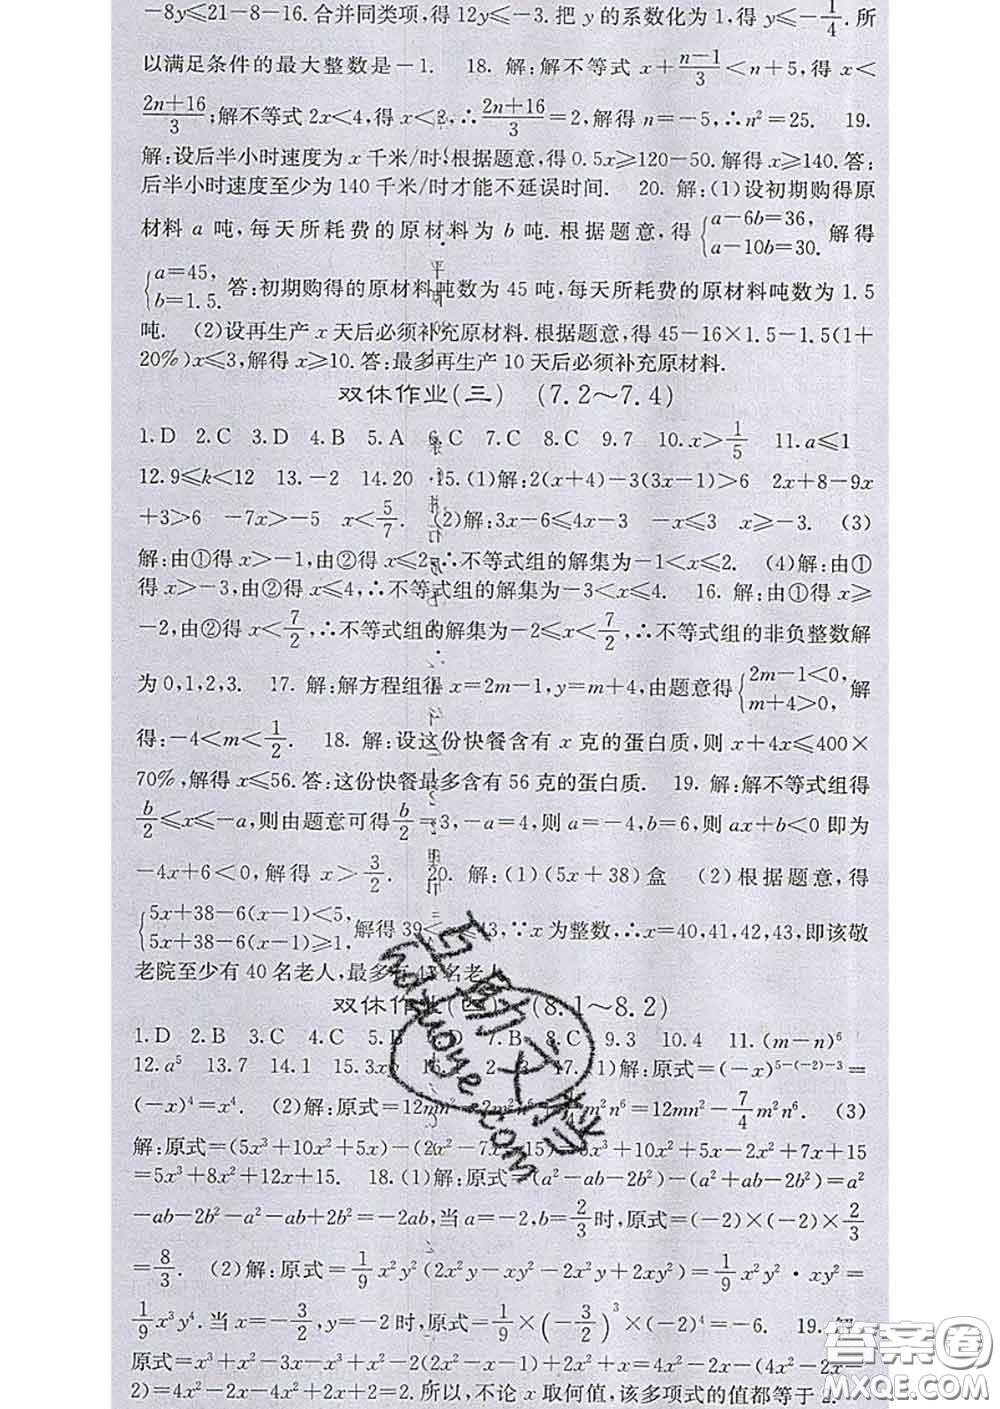 -8y≤21-8-16.合并同类项,得12y≤-3.把 y 的系数化为1,得 y≤-1/4.所
以满足条件的最大整数是-1. 18. 解:解不等式 x+(n-1)/3<n+5,得 x<
(2n+16)/3;解不等式 2x<4,得 x<2,∴(2n+16)/3=2,解得 n=-5,∴n²=25. 19.
解:设后半小时速度为 x 千米/时.根据题意,得 0.5x≥120-50.解得 x≥140.答:
后半小时速度至少为 140 千米/时才能不延误时间. 20. 解:(1)设初期购得原
材料 a 吨,每天所耗费的原材料为 b 吨.根据题意,得{a-6b=36, a-10b=30. 解得
{a=45, b=1.5. 答:初期购得的原材料吨数为 45 吨,每天所耗费的原材料吨数为 1.5
吨. (2)设再生产 x 天后必须补充原材料.根据题意,得 45-16×1.5-1.5(1+
20%)x≤3,解得 x≥10.答:最多再生产 10 天后必须补充原材料.
双休作业(三) (7.2～7.4)
1.D 2.C 3.D 4.B 5.A 6.C 7.C 8.C 9.7 10.x>1/5 11.a≤1
12.9≤k<12 13.-2 14.20 15.(1)解:2(x+4)-3(3x-1)>6 2x+8-9x
+3>6 -7x>-5 x<5/7. (2)解:3x-6≤4x-3 -x≤3 x≥-3. (3)
解:由①得 x>-1,由②得 x≤2,∴不等式组的解集为-1<x≤2. (4)解:由①
得 x>-3,由②得 x≤4,∴不等式组的解集为-3<x≤4. 16. 解:由①得 x≥
-2,由②得 x<7/2,∴不等式组的解集为-2≤x<7/2,∴不等式组的非负整数解
为 0,1,2,3. 17. 解:解方程组得 x=2m-1,y=m+4,由题意得{2m-1<0, m+4>0, 解
得:-4<m<1/2. 18. 解:设这份快餐含有 x 克的蛋白质,则 x+4x≤400×
70%,解得 x≤56.答:这份快餐最多含有 56 克的蛋白质. 19. 解:解不等式组得
b/2≤x≤-a,则由题意可得 b/2=3,-a=4,则 a=-4,b=6,则 ax+b<0 即为
-4x+6<0,解得 x>3/2. 20. 解:(1)(5x+38)盒 (2)根据题意,得
{5x+38-6(x-1)<5, 5x+38-6(x-1)≥1. 解得 39< ≤43,∵x 为整数,∴x=40,41,42,43,即该敬
老院至少有 40 名老人,最多有 43 名老人
双休作业(四) (8.1～8.2)
1.D 2.B 3.C 4.C 5.B D 7.B 8.C 9.3 10.4 11.(m-n)⁶
12.a⁵ 13.7 14.1 15.3x 2 17.(1)解:原式=(-x)⁵⁻⁽⁻²⁾⁻³=
(-x)⁴=x⁴. (2)解:原式=12mn² 2m²n⁶ m²n⁶=12mn²-7/4m²n⁶. (3)
解:原式=(5x³+10x²+5x)-(2x²-7x 15)=5x³+10x²+5x-2x²+7x+15
=5x³+8x²+12x+15. 18.(1)解:原式=(a²-ab-2b²)-(a²+ab-2b²)=a²
-ab-2b²-a²-ab+2b²=-2ab,当 a=-2,b=2/3时,原式=(-2)×(-2)×2/3
=8/3. (2)解:原式=1/9x²y²(2x²y-xy²-2x²y+2xy²)=1/9x²y²·xy²=
1/9x³y⁴.当 x=-3/2,y=-2时,原式=1/9×(-3/2)³×(-2)⁴=-6. 19. 解:
原式=x³+x²-3x-x³-2(2x²-x-1)+x²+x=4x²-2x-(4x²-2x-
2)=4x²-2x-4x²+2x+2=2.所以,不论 x 取何值,该多项式的值都等于 2.
互助文档
hdzuoye.com
答案圈
MXQE.COM